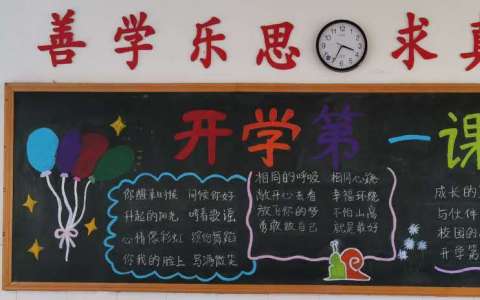 善学乐思 求真
开学第一课
你醒来时候 问候你好
升起的阳光 哼着歌谣
心情像彩虹 缤纷舞蹈
你我的脸上 写满微笑
相同的呼吸 相同心跳
敞开心去看 幸福环绕
放飞你的梦 不怕山高
勇敢做自己 就是最好
成长的
与伙伴
校园的
开学第